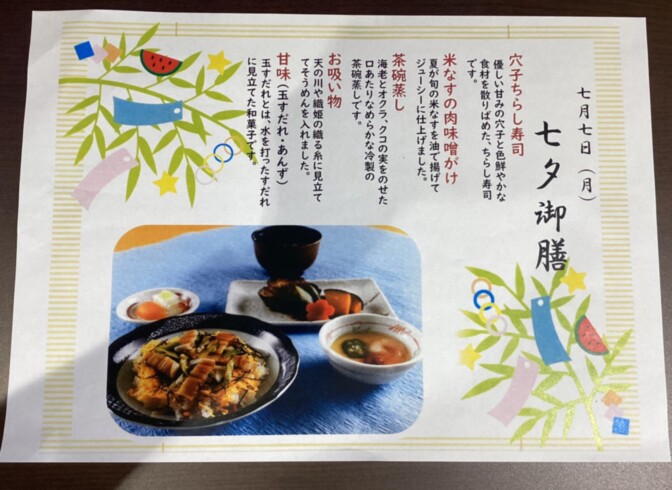 七月七日（月）
七夕御膳
穴子ちらし寿司
優しい甘みの穴子と色鮮やかな
食材を散りばめた、ちらし寿司
です。
米なすの肉味噌がけ
夏が旬の米なすを油で揚げて
ジューシーに仕上げました。
茶碗蒸し
海老とオクラ、クコの実をのせた
口あたりなめらかな冷製の
茶碗蒸しです。
お吸い物
天の川や織姫の織る糸に見立て
てそうめんを入れました。
甘味（玉すだれ・あんず）
玉すだれとは、水を打ったすだれ
に見立てた和菓子です。